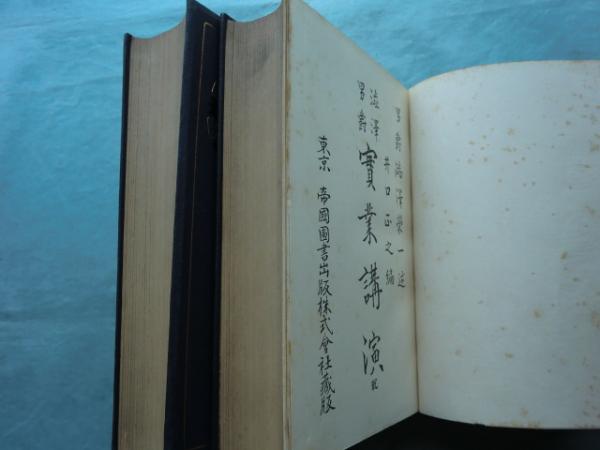 男爵澁澤榮一述
井口正之編
男爵
澁澤
實業講演
東京 帝國圖書出版株式會社藏版